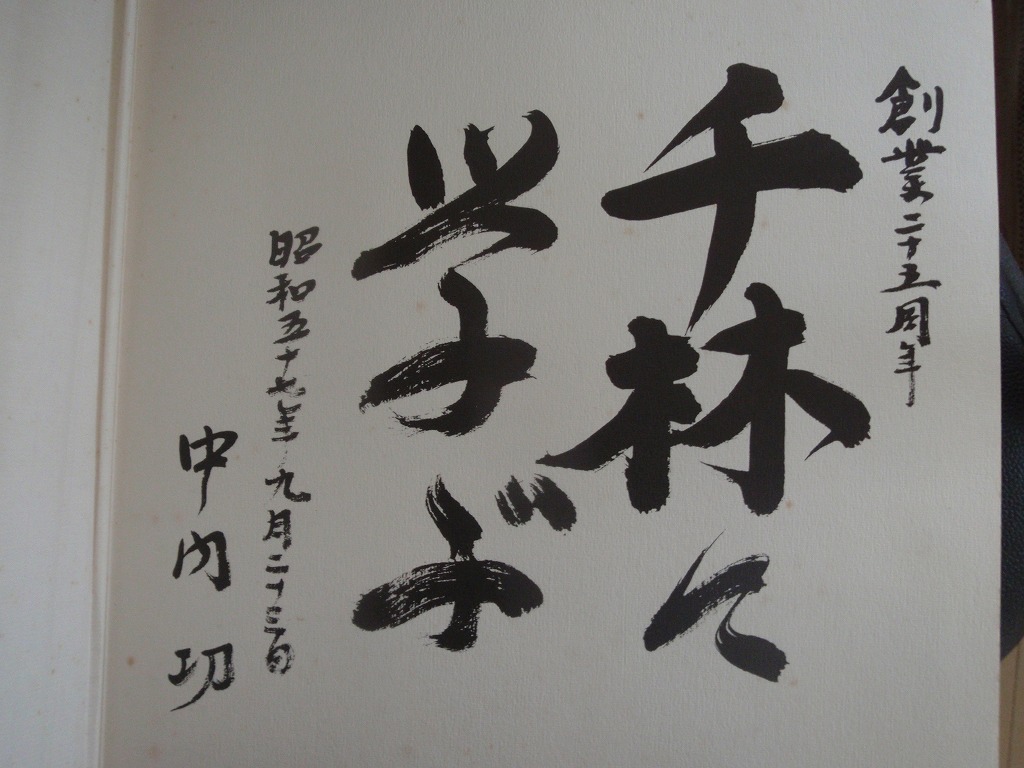 創業二十五周年
千林に
学ぶ
昭和五十七年九月二十三日
中内㓛